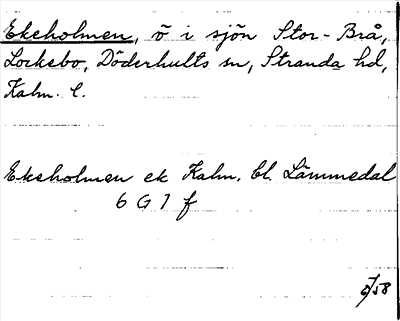 Ekeholmen, ö i sjön Stor-Brå,
Lockebo, Döderhults sn, Stranda hd,
Kalm. l.
Ekeholmen ek Kalm. bl. Lämmedal
6 G 7 f